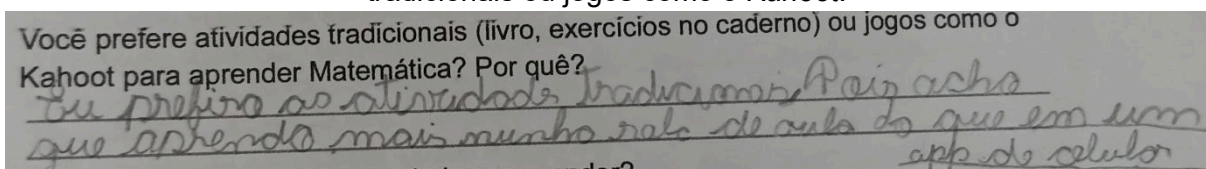 tradicionais ou jogos como o Kahoot.
Você prefere atividades tradicionais (livro, exercícios no caderno) ou jogos como o
Kahoot para aprender Matemática? Por quê?
Eu prefiro as atividade tradicionais, Pois acho
que aprendo mais numha sala de aula do que em um
app de celular